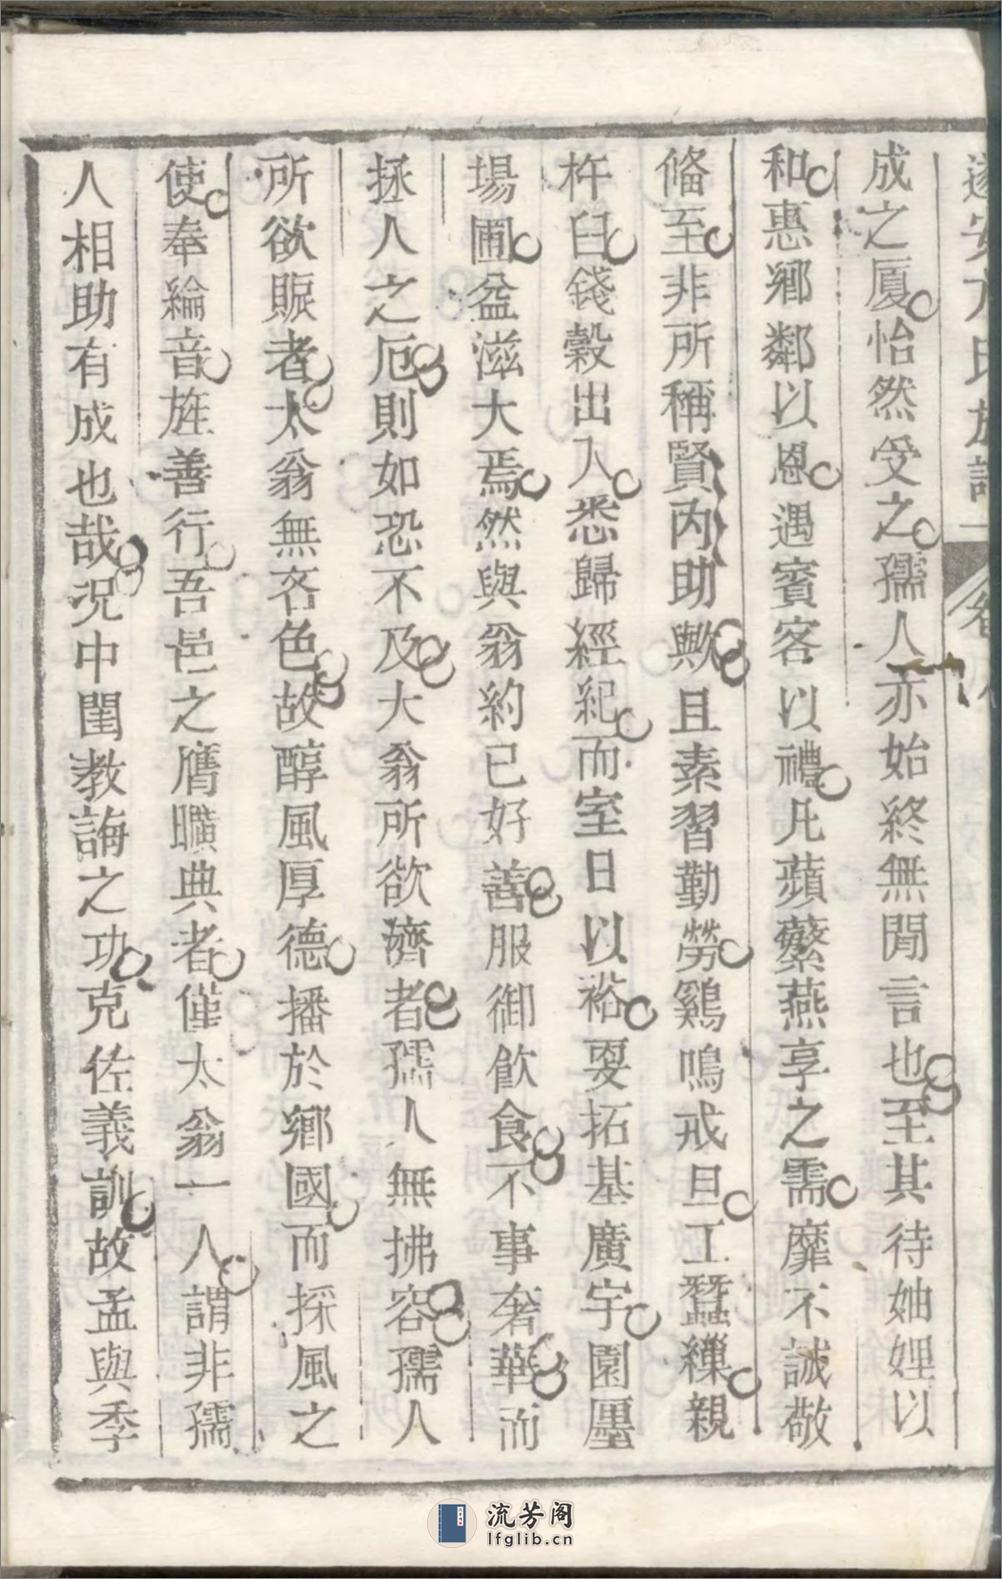 遂安方氏族譜一
成之厦怡然受之孺人亦始終無閒言也至其待妯娌以
和惠鄉鄰以恩遇賓客以禮凡蘋蘩燕享之需靡不誠敬
偹至非所稱賢內助歟且素習勤勞鷄鳴戒旦工蠶繅親
杵臼錢榖出入悉歸經紀而室日以裕爰拓基廣宇園廛
場圃益滋大焉然與翁約已好善服御飲食不事奢華而
拯人之厄則如恐不及大翁所欲濟者孺人無拂容孺人
所欲賑者太翁無吝色故醇風厚德播於鄉國而採風之
使奉綸音旌善行吾邑之膺曠典者僅太翁一人謂非孺
人相助有成也哉況中閨教誨之功克佐義訓故孟與季
流芳阁
lfglib.cn